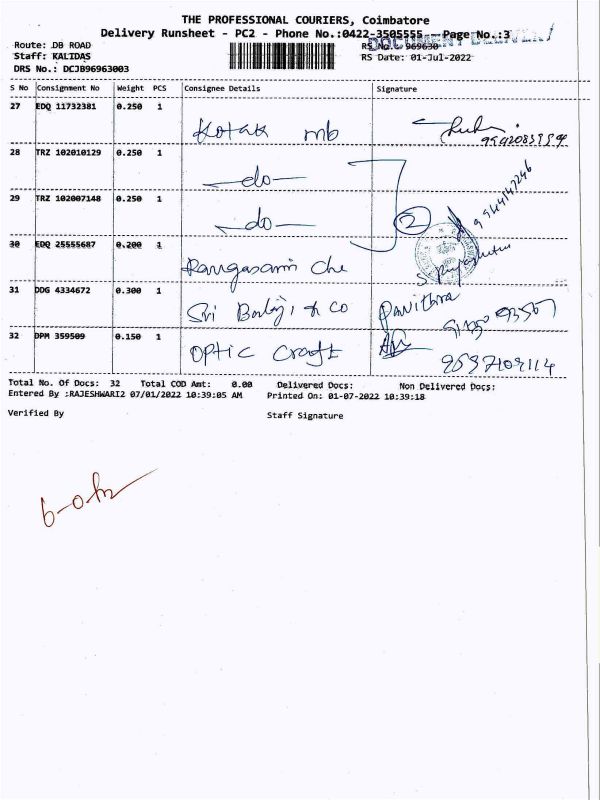 THE PROFESSIONAL COURIERS, Coimbatore
Delivery Runsheet - PC2 - Phone No.:0422-3505555 Page No.:3
DOCUMENT DELIVERY
Route: DB ROAD
RS No. 969630
Staff: KALIDAS
RS Date: 01-Jul-2022
DRS No.: DCJB96963003
S No Consignment No Weight PCS Consignee Details Signature
27 EDQ 11732381 0.250 1 Kotak mb
28 TRZ 102010129 0.250 1 -do-
29 TRZ 102007148 0.250 1 -do- 2
30 EDQ 25555687 0.200 1 Rangasami Che
31 DDG 4334672 0.300 1 Sri Balaji & Co Pavithra
32 DPM 359509 0.150 1 OPTIC Craft
Total No. Of Docs: 32 Total COD Amt: 0.00 Delivered Docs: Non Delivered Docs:
Entered By :RAJESHWARI2 07/01/2022 10:39:05 AM Printed On: 01-07-2022 10:39:18
Verified By Staff Signature